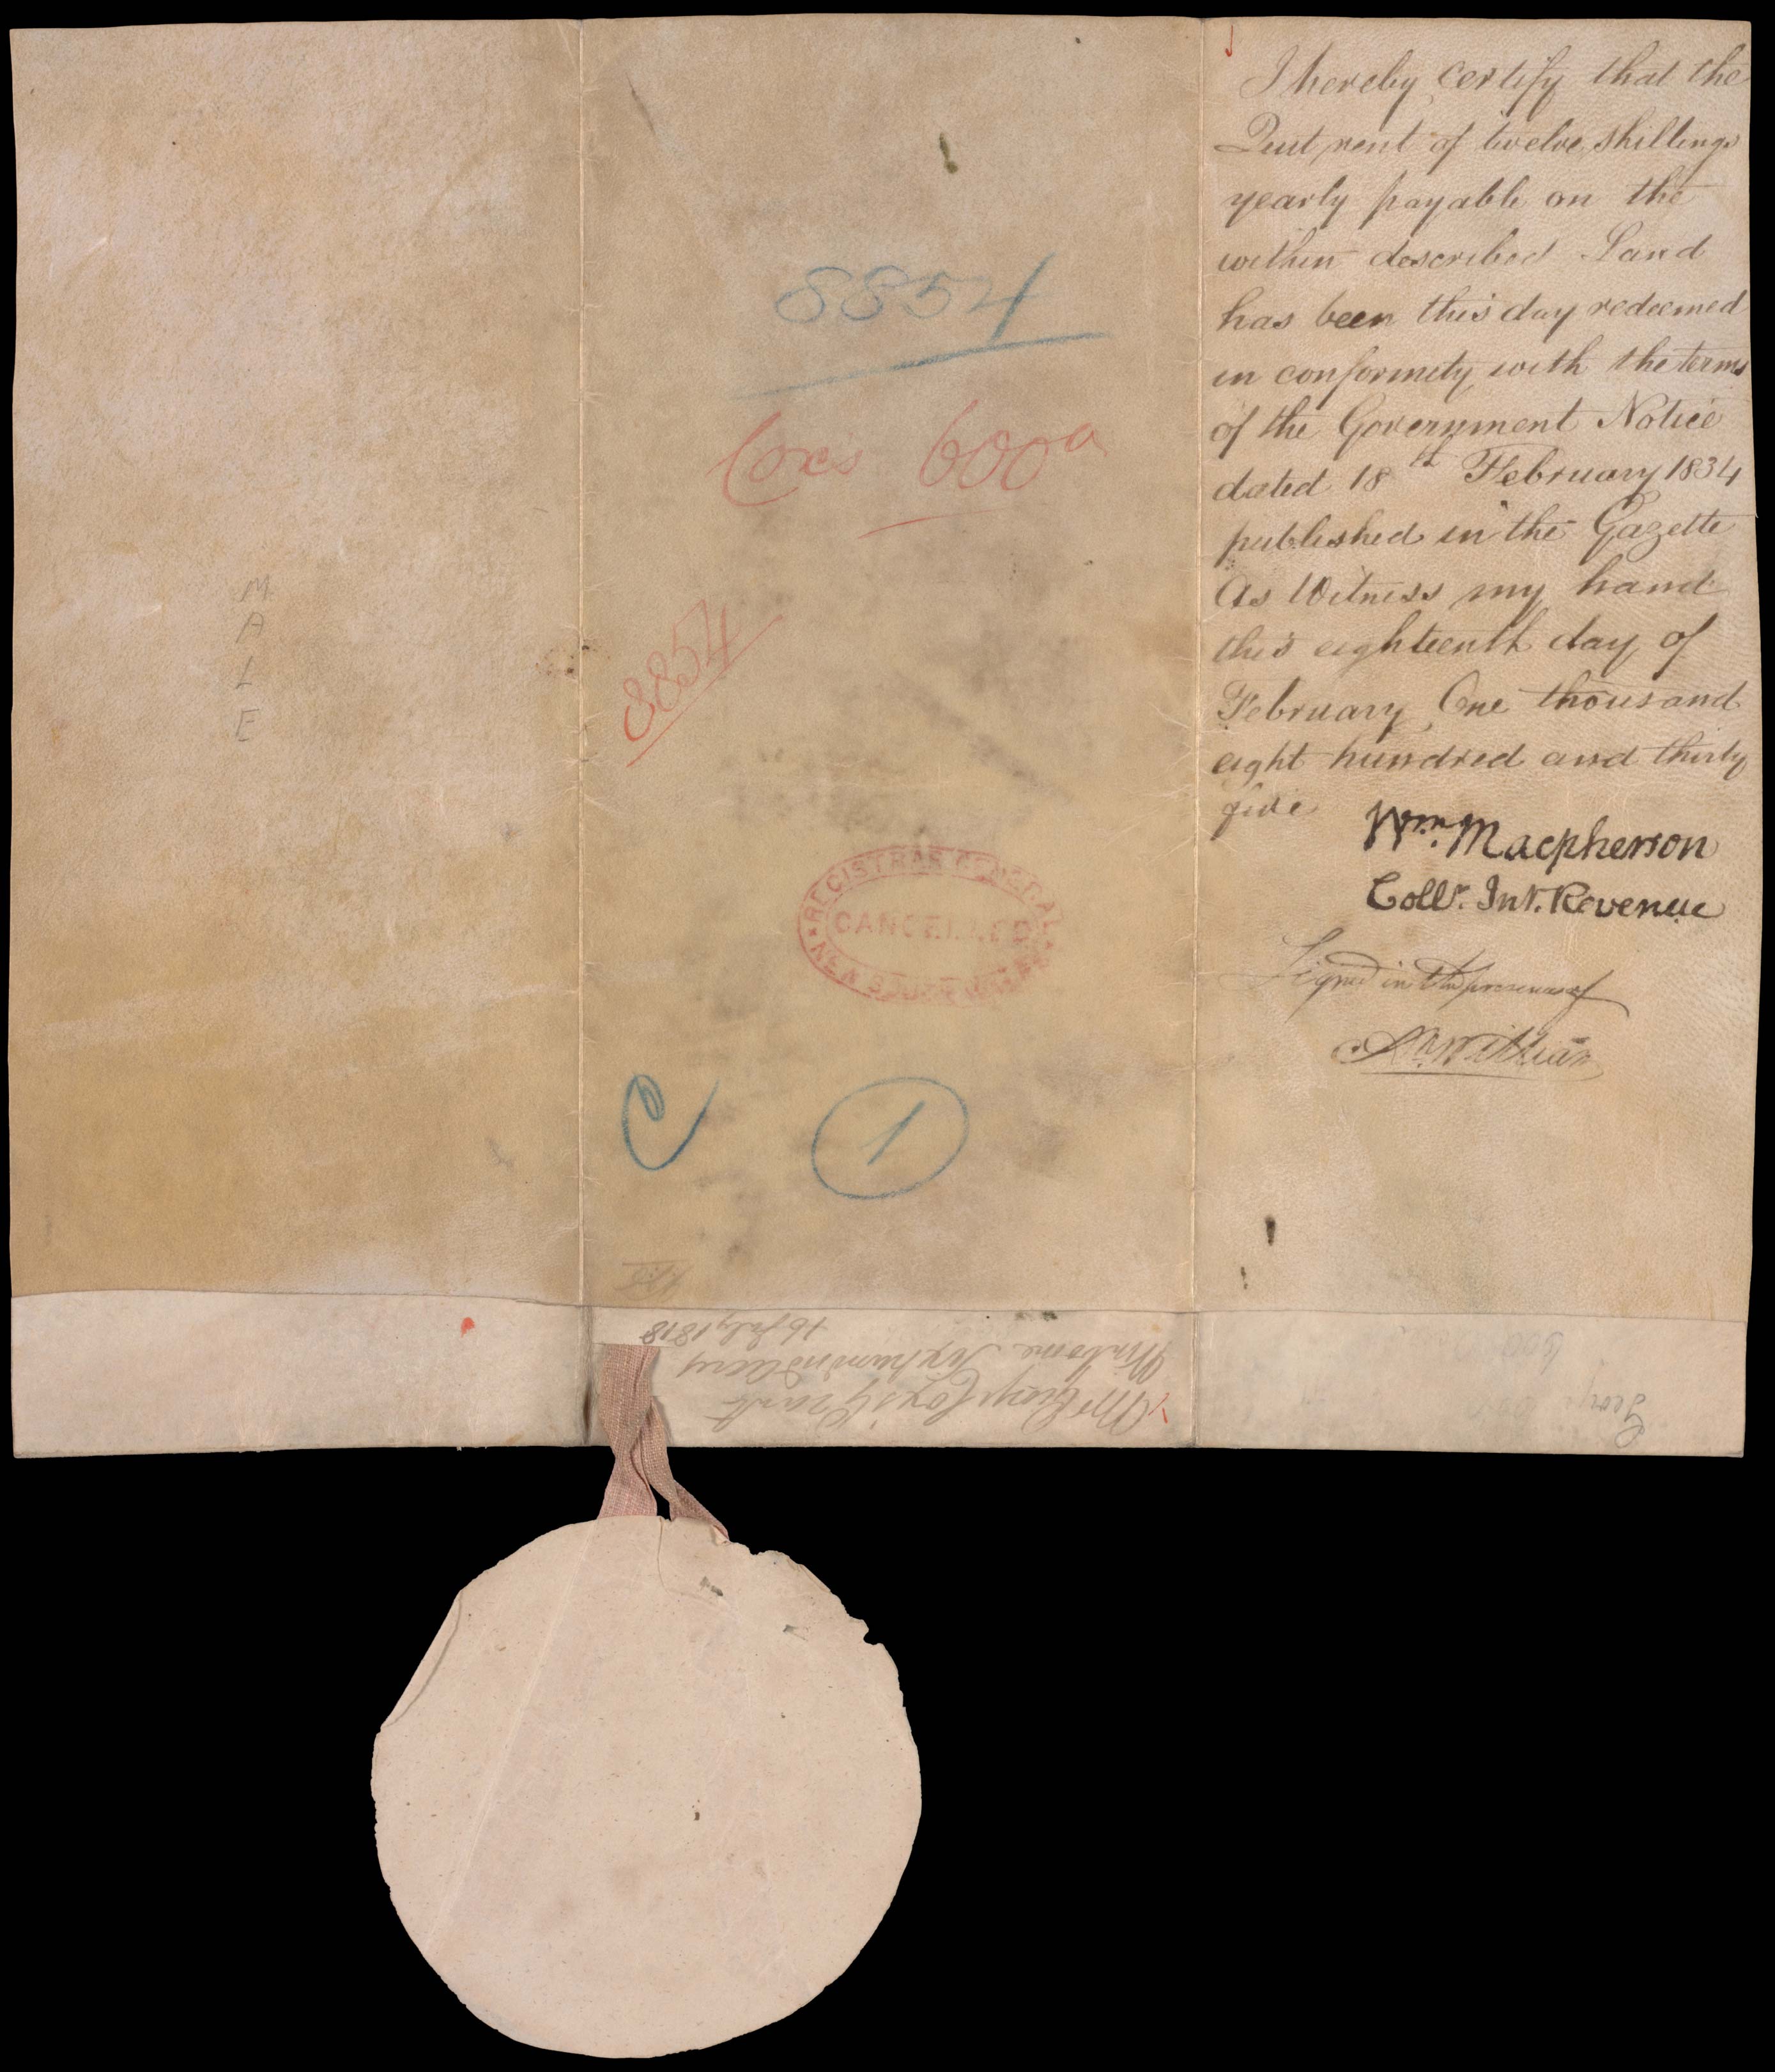 I hereby certify that the
Quit rent of twelve shillings
yearly payable on the
within described Land
has been this day redeemed
in conformity with the terms
of the Government Notice
dated 18th February 1834
published in the Gazette
As Witness my hand
this eighteenth day of
February One thousand
eight hundred and thirty
five
Wm. Macpherson
Collr. Int. Revenue
Signed in the presence of
8854
Cox's 600a
8854
M
A
L
E
REGISTRAR GENERAL
CANCELLED
NEW SOUTH WALES
C
1
Mr George Cox's Grant
Winborne Six hundred acres
16 July 1818
George
600